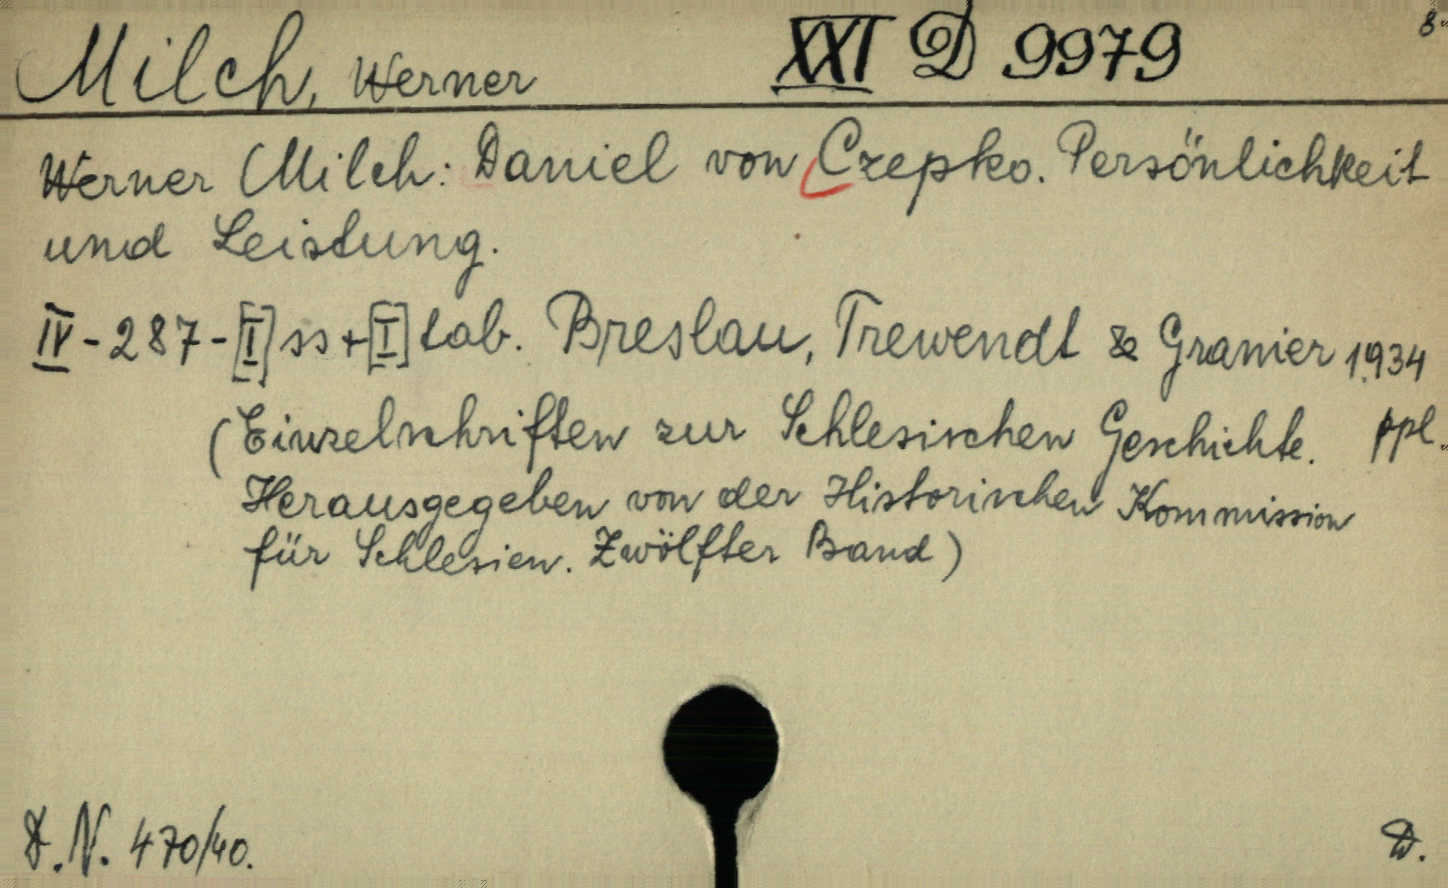 Milch, Werner XXI D 9979 8°
Werner Milch: Daniel von Czepko. Persönlichkeit
und Leistung.
IV-287-[I] ss+[I] tab. Breslau, Trewendt & Granier 1934
(Einzelschriften zur Schlesischen Geschichte. ppl.
Herausgegeben von der Historischen Kommission
für Schlesien. Zwölfter Band)
D.N. 470/40. D.